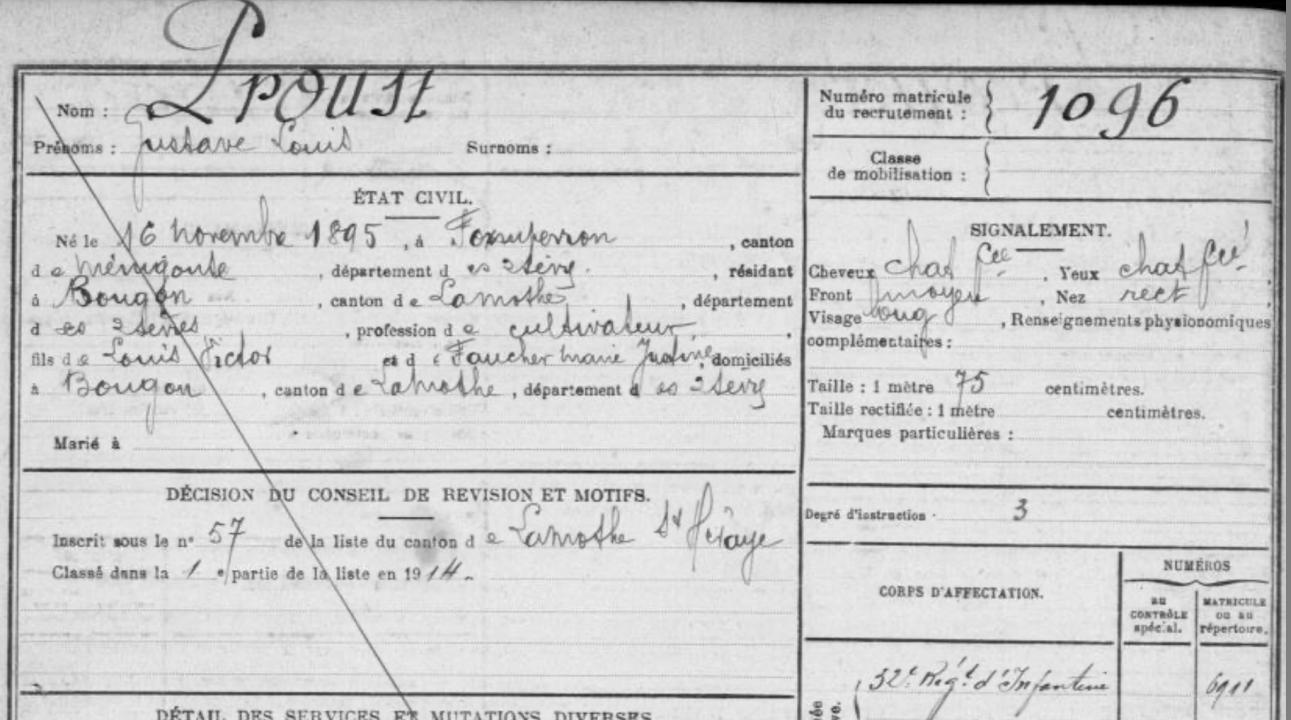 Nom : Proust
Prénoms : Gustave Louis Surnoms :
ÉTAT CIVIL.
Né le 16 novembre 1895, à Fomperron, canton
de Ménigoute, département des 2 Sèvres, résidant
à Bougon, canton de Lamothe, département
des 2 Sèvres, profession de cultivateur,
fils de Louis Victor et de Faucher Marie Justine, domiciliés
à Bougon, canton de Lamothe, département des 2 Sèvres
Marié à
DÉCISION DU CONSEIL DE REVISION ET MOTIFS.
Inscrit sous le n° 57 de la liste du canton de Lamothe St Héraye
Classé dans la 1e partie de la liste en 1914.
DÉTAIL DES SERVICES ET MUTATIONS DIVERSES
Numéro matricule
du recrutement : 1096
Classe
de mobilisation :
SIGNALEMENT.
Cheveux chat fcé. Yeux chat fcé
Front moyen, Nez rect
Visage long, Renseignements physionomiques
complémentaires :
Taille : 1 mètre 75 centimètres.
Taille rectifiée : 1 mètre centimètres.
Marques particulières :
Degré d'instruction . 3
CORPS D'AFFECTATION.
NUMÉROS
AU
CONTRÔLE
spécial.
MATRICULE
ou au
répertoire.
32e Régt d'Infanterie